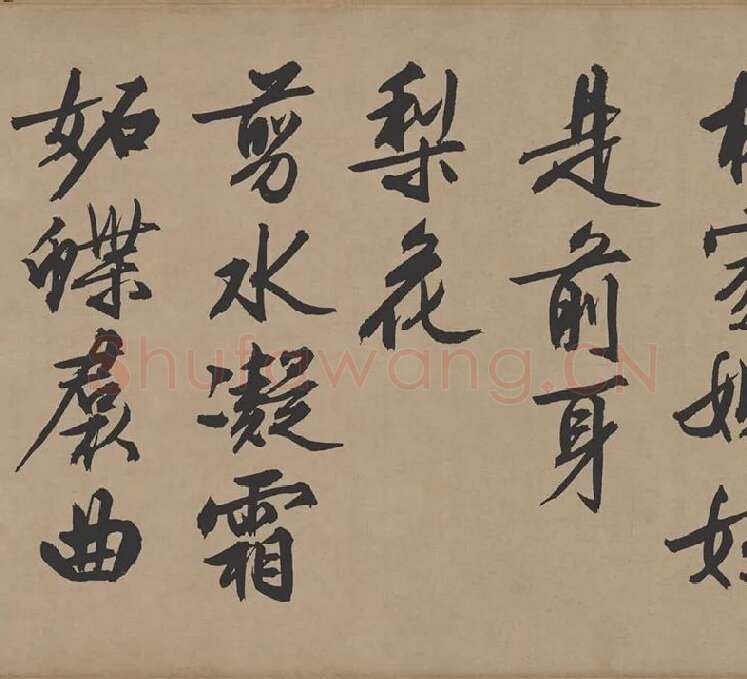 家
是前身
梨花
剪水凝霜
妬蝶裠曲
Shufawang.CN